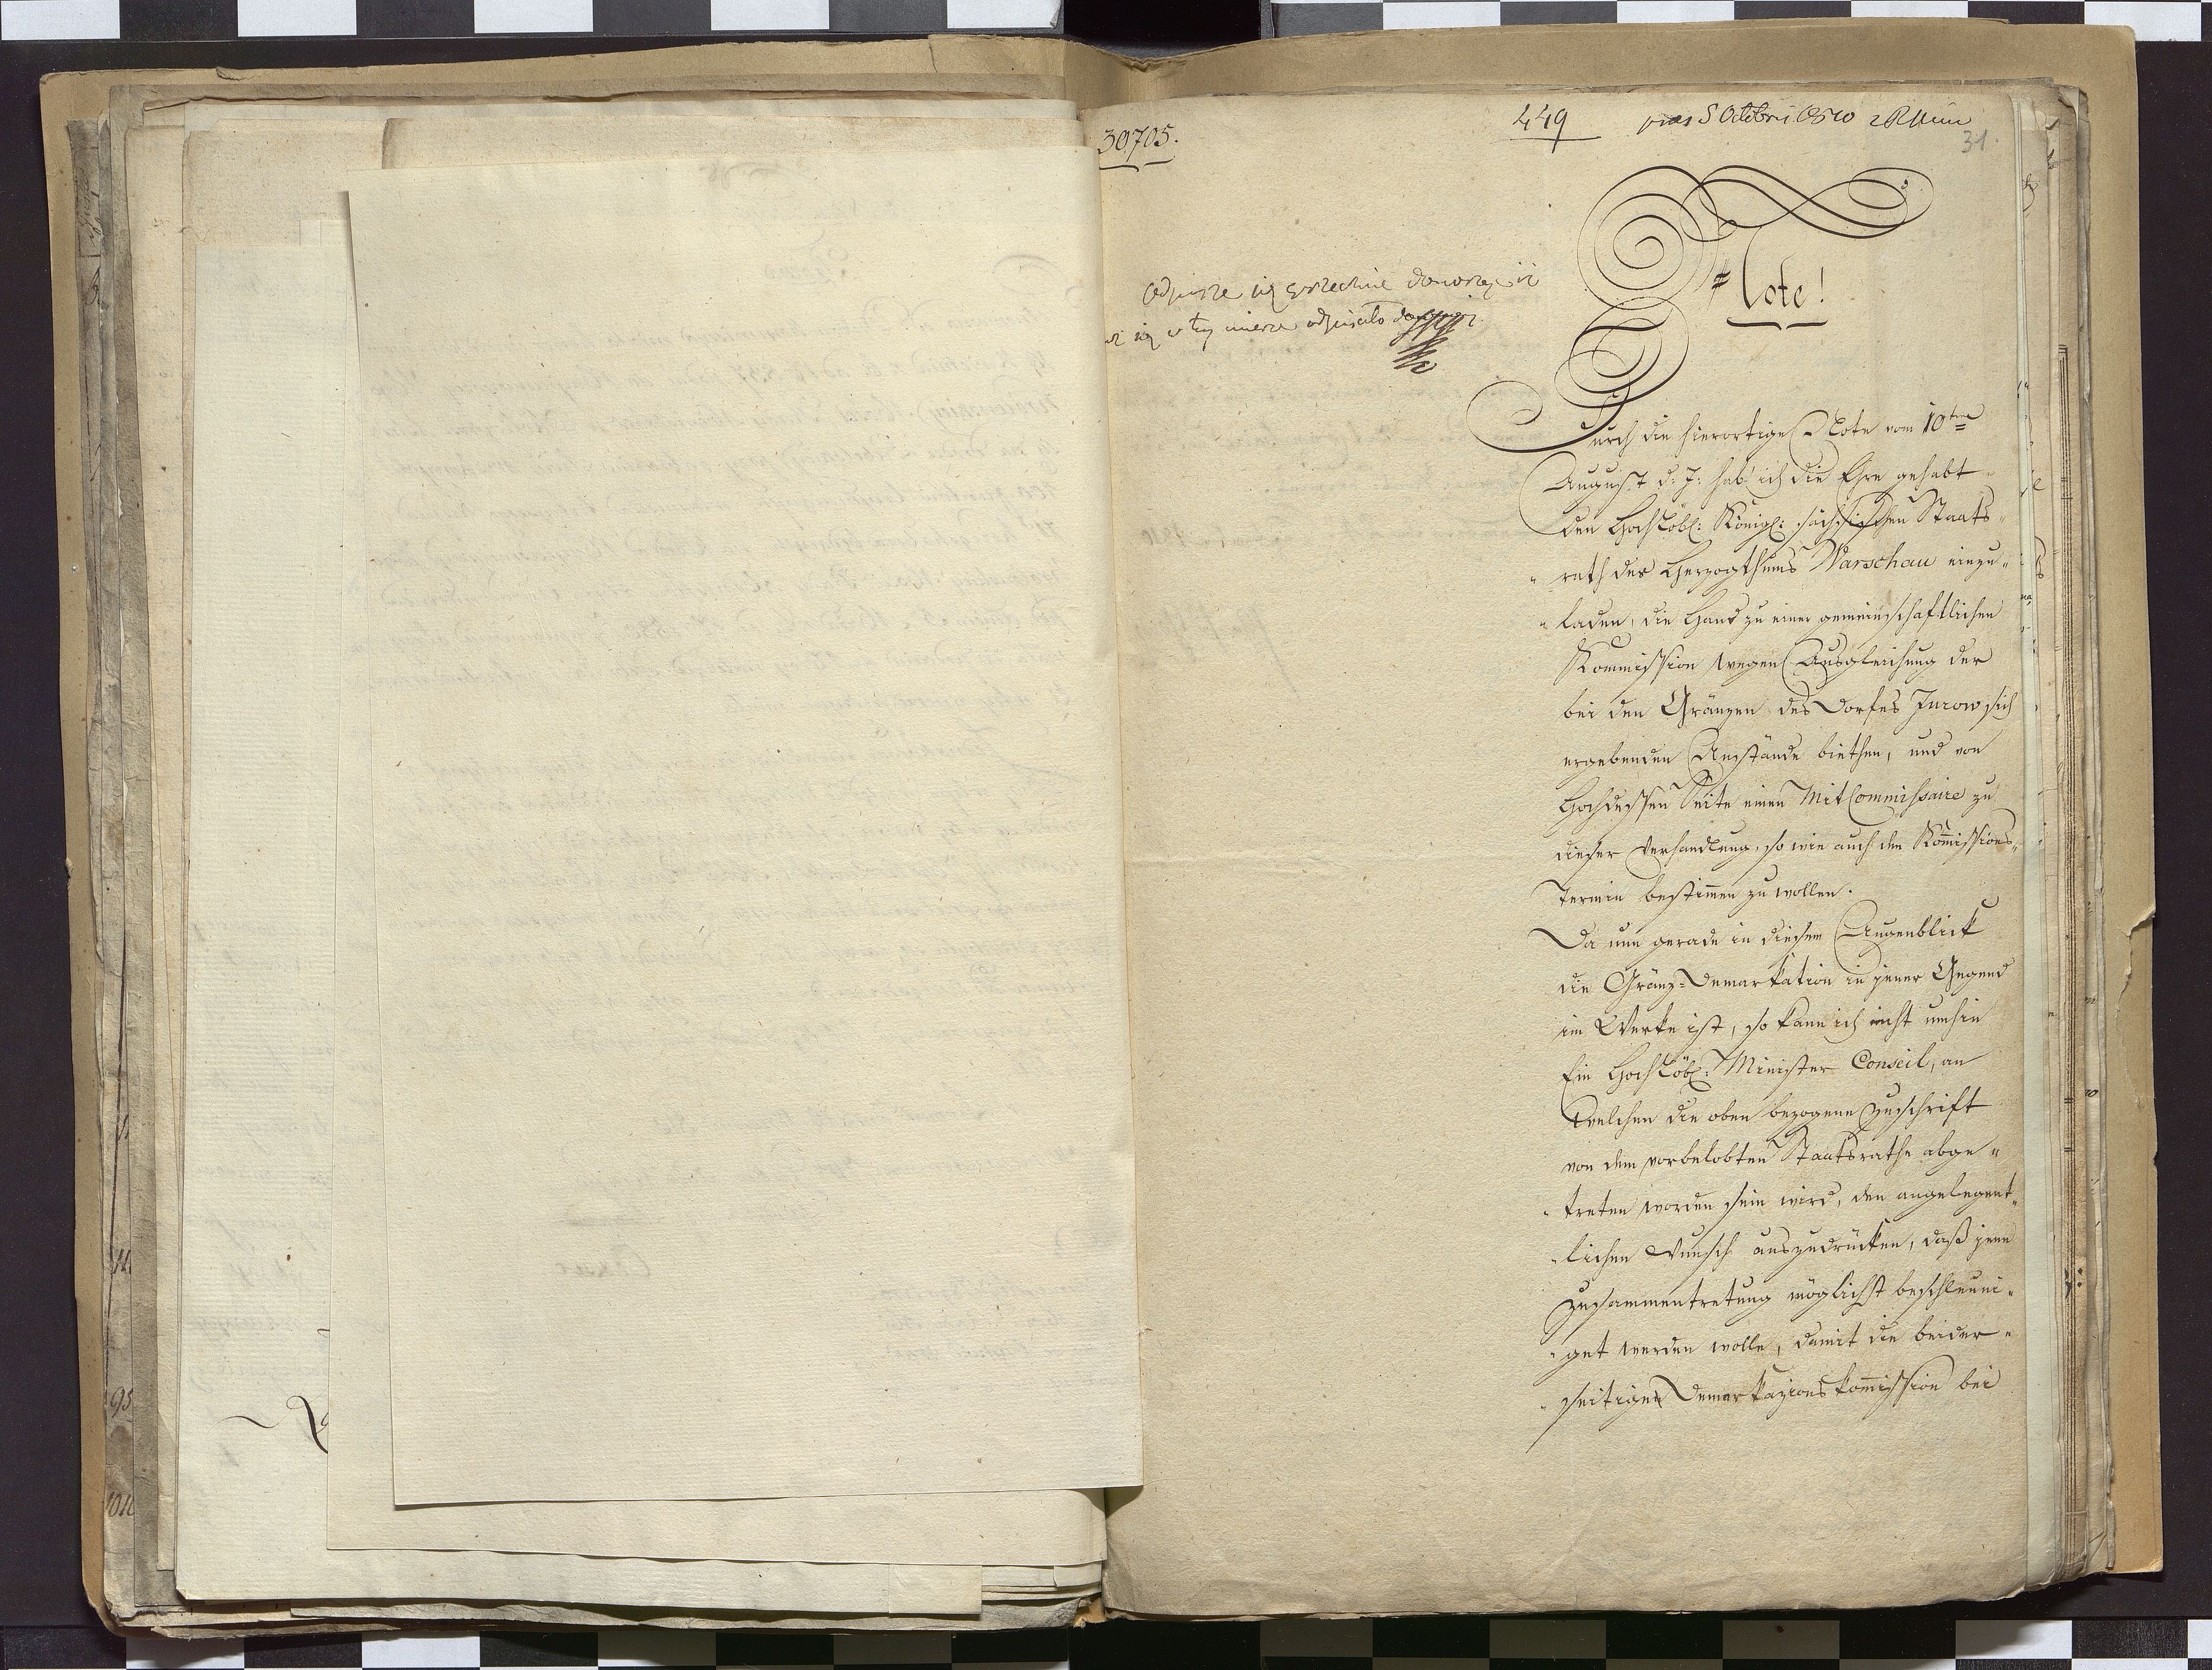 30705.
449
praes 5 Octobri 1810 RMin
31.
Note!
Durch die hierortige Note vom 10ten
August d: J: hab' ich die Ehre gehabt
den Hochlöbl: Königl: sächsischen Staats„
„rath des Herzogthums Warschau einzu„
„laden, die Hand zu einer gemeinschaftlichen
Kommission wegen Ausgleichung der
bei den Gränzen des Dorfes Jurow sich
ergebenden Anstände biethen, und von
Hochdessen Seite einen MitCommissaire zu
dieser Verhandlung, so wie auch den Kom̄issions„
Termin bestim̄en zu wollen.
Da nun gerade in diesem Augenblick
die Gränz=Demarkation in jener Gegend
im Werke ist, so kann ich nicht umhin
Ein Hochlöbl: Minister Conseil, an
Welchen die oben bezogene Zuschrift
von dem vorbelobten Staatsrathe abge„
„treten worden sein wird, den angelegent„
„lichen Wunsch auszudrücken, daß jene
Zusammentretung möglichst beschleuni„
„get werden wolle, damit die beider„
„seitigen Demarkazionskom̄ission bei